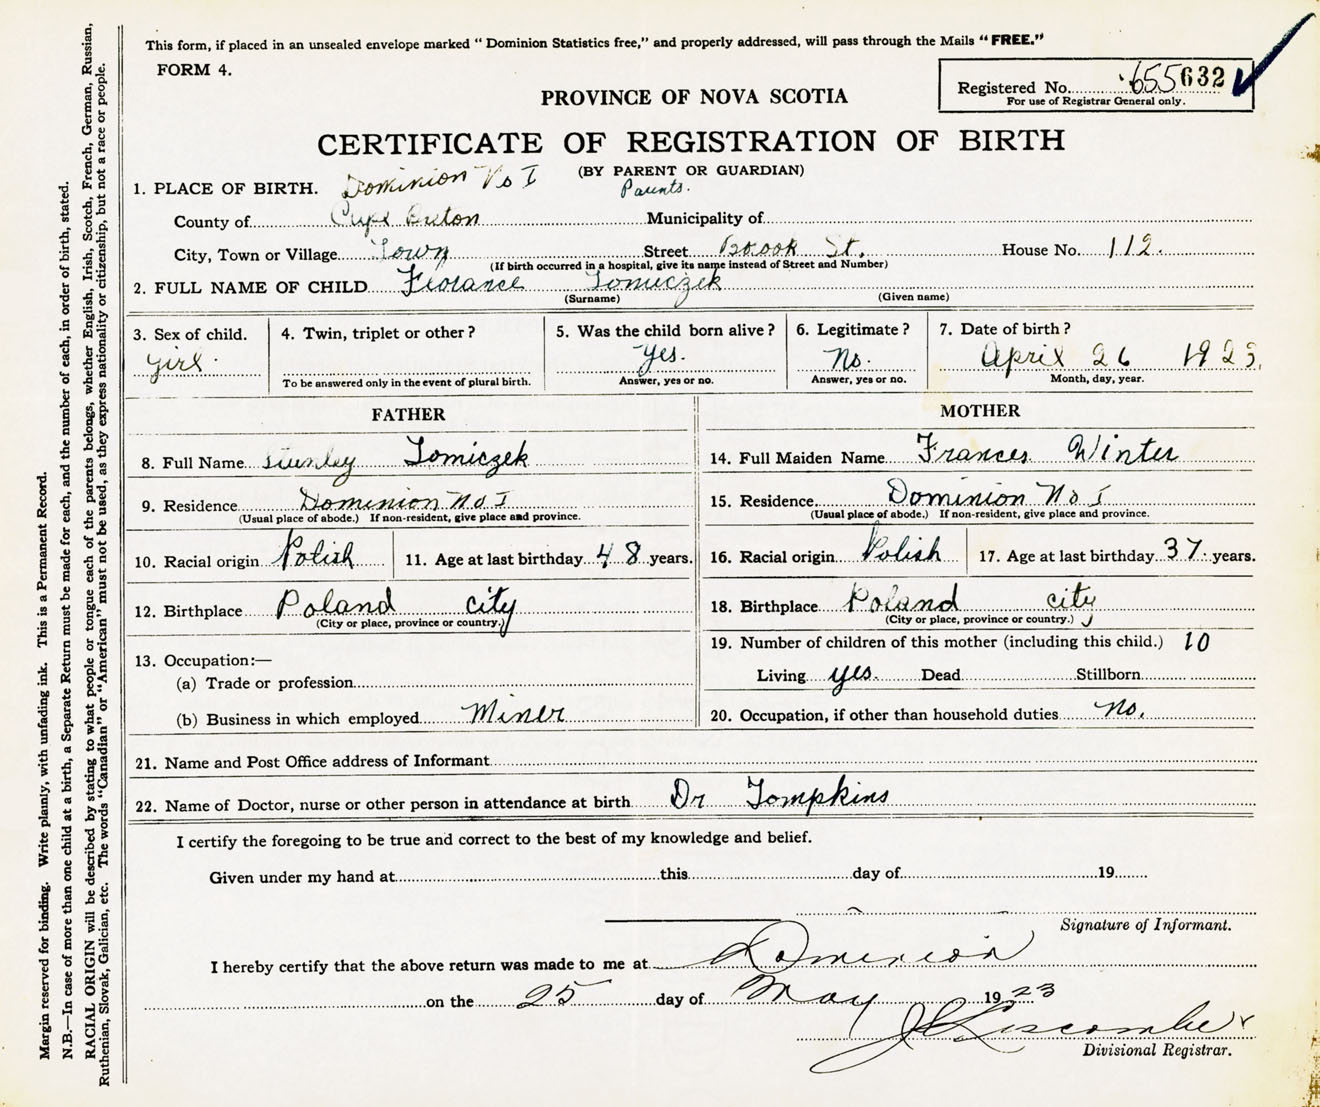 This form, if placed in an unsealed envelope marked " Dominion Statistics free," and properly addressed, will pass through the Mails " FREE."
FORM 4.
Registered No. 655632
For use of Registrar General only.
PROVINCE OF NOVA SCOTIA
CERTIFICATE OF REGISTRATION OF BIRTH
(BY PARENT OR GUARDIAN)
1. PLACE OF BIRTH. Dominion No I Parents.
County of Cape Breton Municipality of
City, Town or Village Town Street Brook St. House No. 112.
(If birth occurred in a hospital, give its name instead of Street and Number)
2. FULL NAME OF CHILD Florance Tomiczek
(Surname) (Given name)
3. Sex of child. 4. Twin, triplet or other ? 5. Was the child born alive ? 6. Legitimate ? 7. Date of birth ?
girl. Yes. No. April 26 1923.
To be answered only in the event of plural birth. Answer, yes or no. Answer, yes or no. Month, day, year.
FATHER MOTHER
8. Full Name Stanley Tomiczek 14. Full Maiden Name Frances Winter
9. Residence Dominion No I 15. Residence Dominion No I
(Usual place of abode.) If non-resident, give place and province. (Usual place of abode.) If non-resident, give place and province.
10. Racial origin Polish 11. Age at last birthday 48 years. 16. Racial origin Polish 17. Age at last birthday 37 years.
12. Birthplace Poland city 18. Birthplace Poland city
(City or place, province or country.) (City or place, province or country.)
19. Number of children of this mother (including this child.) 10
13. Occupation:—
(a) Trade or profession Living yes. Dead Stillborn
(b) Business in which employed Miner 20. Occupation, if other than household duties no.
21. Name and Post Office address of Informant
22. Name of Doctor, nurse or other person in attendance at birth Dr Tompkins
I certify the foregoing to be true and correct to the best of my knowledge and belief.
Given under my hand at this day of 19
Signature of Informant.
I hereby certify that the above return was made to me at Dominion
on the 25 day of May 1923
Liscombe
Divisional Registrar.
Margin reserved for binding. Write plainly, with unfading ink. This is a Permanent Record.
N.B.—In case of more than one child at a birth, a Separate Return must be made for each, and the number of each, in order of birth, stated.
RACIAL ORIGIN will be described by stating to what people or tongue each of the parents belongs, whether English, Irish, Scotch, French, German, Russian,
Ruthenian, Slovak, Galician, etc. The words "Canadian" or "American" must not be used, as they express nationality or citizenship, but not a race or people.